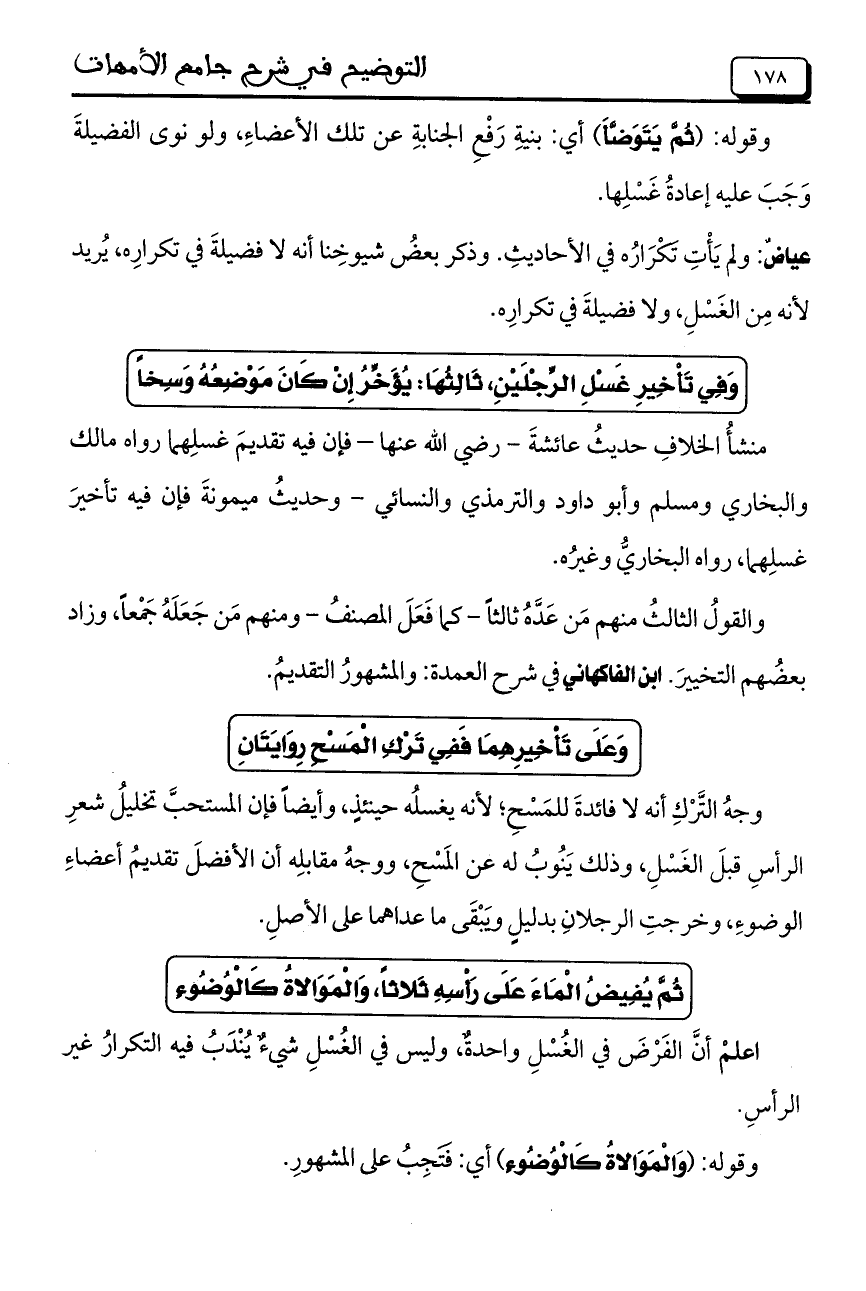 ١٧٨
التوضيح في شرح جامع الأمهات
وقوله: (ثُمَّ يَتَوَضَّأَ) أي: بنيةِ رَفْعِ الجنابةِ عن تلك الأعضاءِ، ولو نوى الفضيلةَ
وَجَبَ عليه إعادةُ غَسْلِها.
عياضٌ: ولم يَأْتِ تَكْرَارُه في الأحاديثِ. وذكر بعضُ شيوخِنا أنه لا فضيلةَ في تكرارِه، يُريد
لأنه مِن الغَسْلِ، ولا فضيلةَ في تكرارِه.
وَفِي تَأْخِيرِ غَسْلِ الرِّجْلَيْنِ، ثَالِثُهَا: يُؤَخِّرُ إِنْ كَانَ مَوْضِعُهُ وَسِخاً
منشأُ الخلافِ حديثُ عائشةَ – رضي الله عنها – فإن فيه تقديمَ غسلِهما رواه مالك
والبخاري ومسلم وأبو داود والترمذي والنسائي – وحديثُ ميمونةَ فإن فيه تأخيرَ
غسلِهما، رواه البخاريُّ وغيرُه.
والقولُ الثالثُ منهم مَن عَدَّهُ ثالثاً – كما فَعَلَ المصنفُ – ومنهم مَن جَعَلَهُ جَمْعاً، وزاد
بعضُهم التخييرَ. ابن الفاكهاني في شرح العمدة: والمشهورُ التقديمُ.
وَعَلَى تَأْخِيرِهِمَا فَفِي تَرْكِ الْمَسْحِ رِوَايَتَانِ
وجهُ التَّرْكِ أنه لا فائدةَ للمَسْحِ؛ لأنه يغسلُه حينئذٍ، وأيضاً فإن المستحبَّ تخليلُ شعرِ
الرأسِ قبلَ الغَسْلِ، وذلك يَنُوبُ له عن المَسْحِ، ووجهُ مقابلِه أن الأفضلَ تقديمُ أعضاءِ
الوضوءِ، وخرجتِ الرجلان بدليلٍ ويَبْقَى ما عداهما على الأصلِ.
ثُمَّ يُفِيضُ الْمَاءَ عَلَى رَأْسِهِ ثَلاثاً، وَالْمَوَالاةُ كَالْوُضُوءِ
اعلمْ أنَّ الفَرْضَ في الغُسْلِ واحدةٌ، وليس في الغُسْلِ شيءٌ يُنْدَبُ فيه التكرارُ غير
الرأسِ.
وقوله: (وَالْمَوَالاةُ كَالْوُضُوءِ) أي: فَتَجِبُ على المشهورِ.